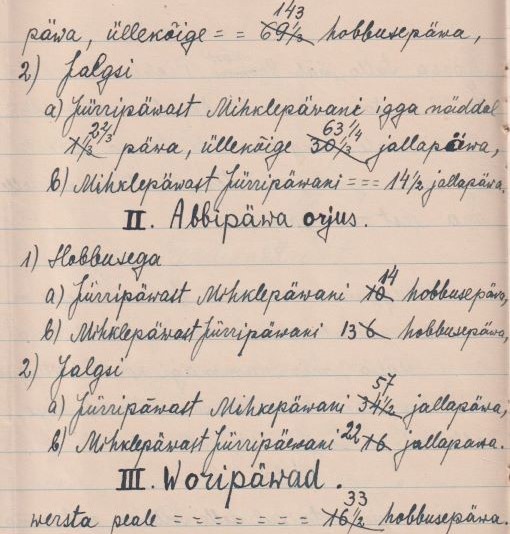 143
päwa, üllekõige = = 69 1/3 hobbusepäwa,
2) Jalgsi
a) Jürripäwast Mihklepäwani igga näddal
2 2/3 63 1/4
1 1/3 päwa, üllekõige 30 1/3 jallapäwa,
b) Mihklepäwast Jürripäwani === 14 1/2 jallapäwa.
II. Abbipäwa orjus.
1) Hobbusega
14
a) Jürripäwast Mihklepäwani 10 hobbusepäwa,
b) Mihklepäwast Jürripäwani 13 6 hobbusepäwa,
2) Jalgsi
57
a) Jürripäwast Mihkepäwani 34 1/2 jallapäwa,
b) Mihklepäwast Jürripäewani 22 16 jallapäwa.
III. Woripäwad.
33
wersta peale = = = = = = = 16 1/2 hobbusepäwa.